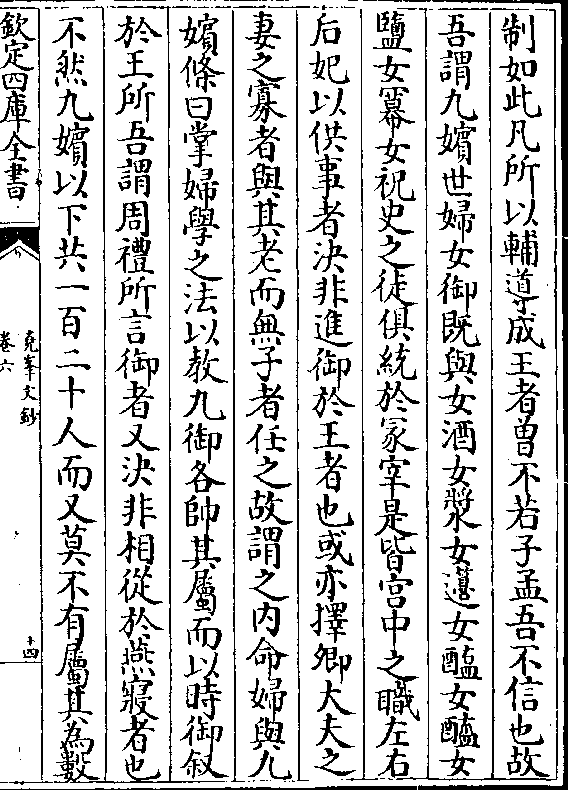 制如此凡所以輔導成王者曽不若子孟吾不信也故
吾謂九嬪世婦女御既與女酒女漿女籩女醢女醯女
鹽女冪女祝史之徒俱統於冢宰是皆宫中之職左右
后妃以供事者決非進御於王者也或亦擇卿大夫之
妻之寡者與其老而無子者任之故謂之内命婦與九
嬪條曰掌婦學之法以教九御各帥其屬而以時御叙
於王所吾謂周禮所言御者又決非相從於燕寢者也
不然九嬪以下共一百二十人而又莫不有屬其為數
欽定四庫全書
堯峯文鈔
卷六
十四